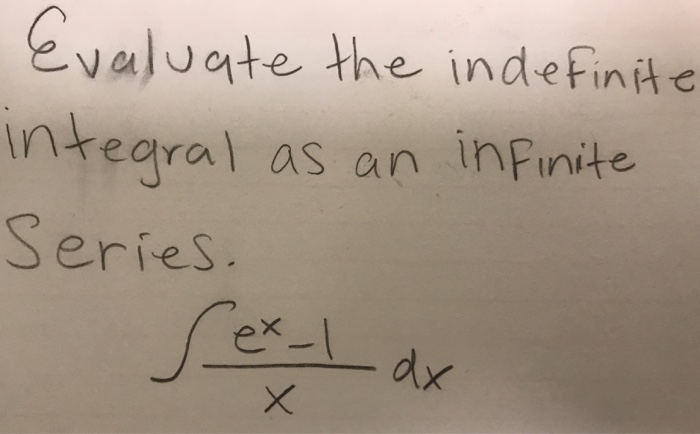 Evaluate the indefinite
integral as an infinite
Series.
∫ (e^x - 1)/x dx